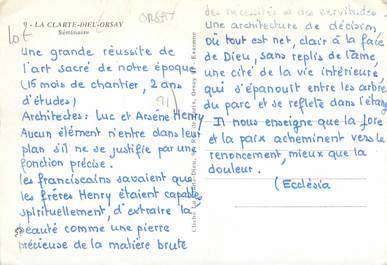 9 - LA CLARTE-DIEU-ORSAY
Séminaire
ORSAY
Lot
Une grande réussite de
l'art sacré de notre époque
(15 mois de chantier, 2 ans
d'études)
Architectes: Luc et Arsène Henry
Aucun élément n'entre dans leur
plan s'il ne se justifie par une
fonction précise.
les franciscains savaient que
les frères Henry étaient capables,
spirituellement, d'extraire la
beauté comme une pierre
précieuse de la matière brute
91
des nécessités et des servitudes
une architecture de décision,
où tout est net, clair à la face
de Dieu, sans replis de l'âme,
une cité de la vie intérieure,
qui s'épanouit entre les arbres
du parc et se reflète dans l'étang
Il nous enseigne que la joie
et la paix acheminent vers le
renoncement, mieux que la
douleur.
(Ecclésia